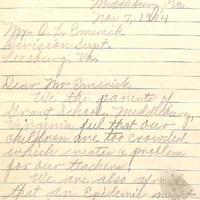 Middleburg, Va.
Nov 7, 1944
Mr. O. L. Emerick
Division Supt.
Leesburg, Va.
Dear Mr Emerick
We the parents of
Grant School, Middleburg,
Virginia feel that our
children are too crowded
which creates a problem
for our teachers!
We are also afraid
that an Epidemic might